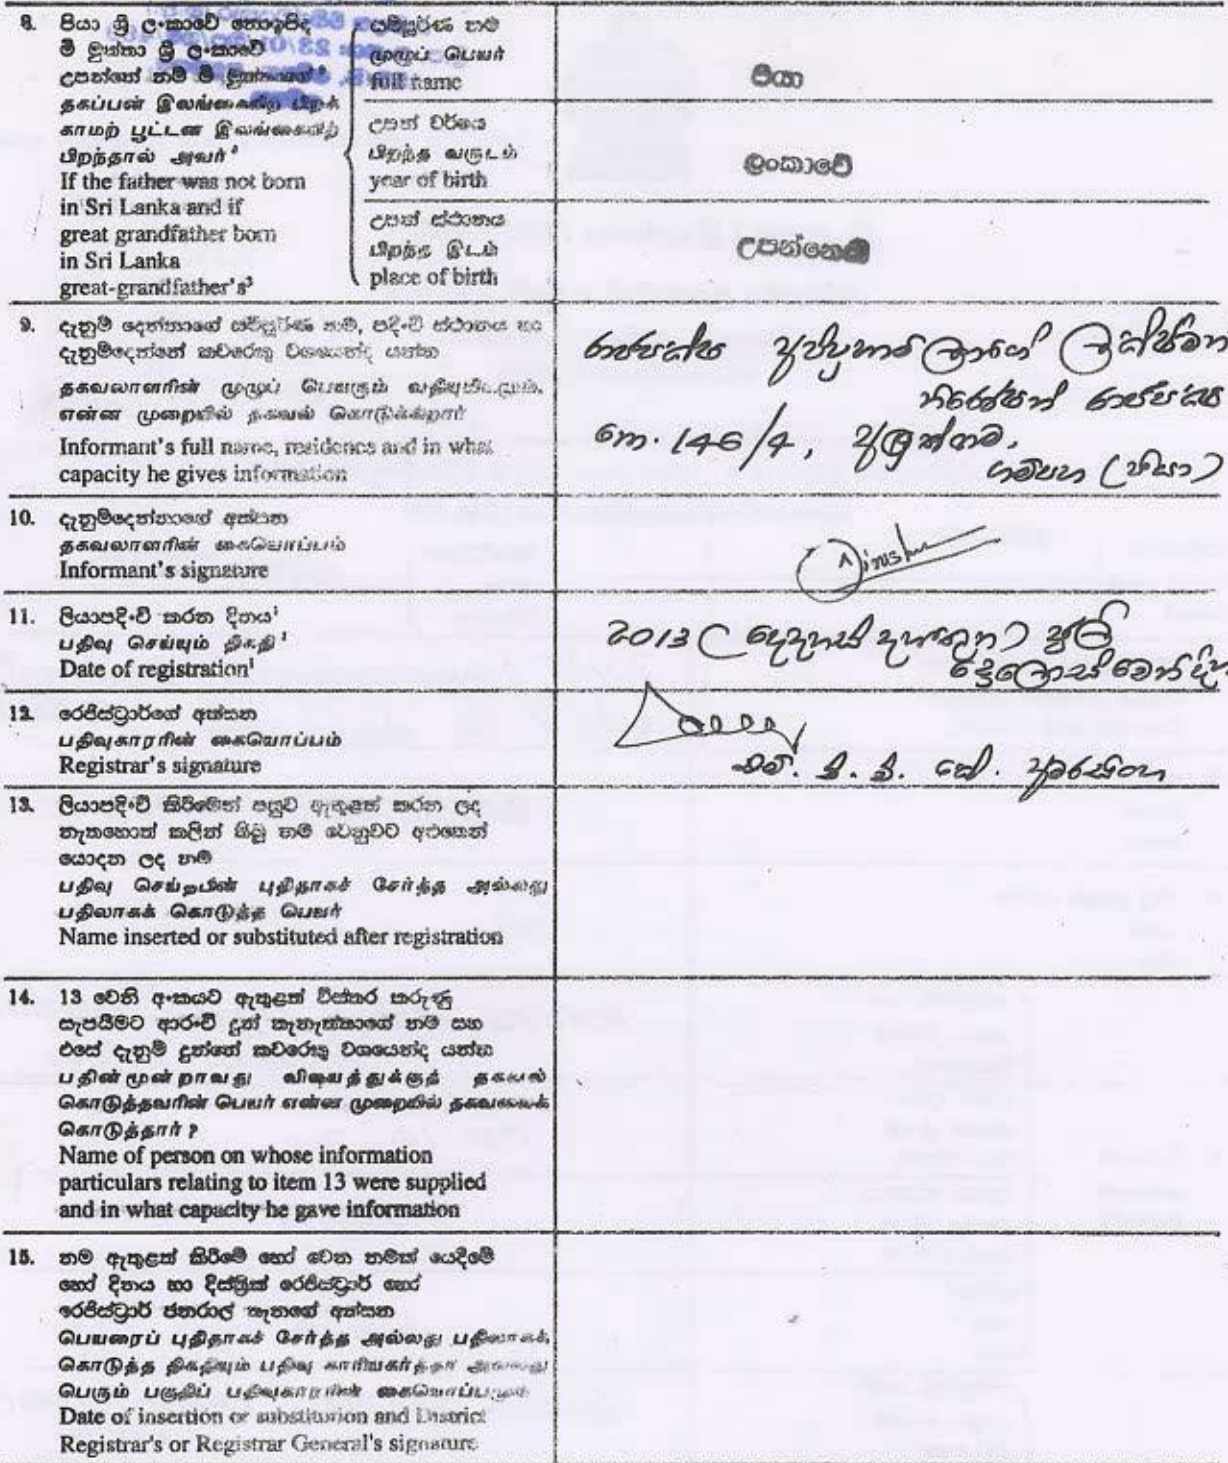 8. පියා ශ්‍රී ලංකාවේ නොඉපිද
මී මුත්තා ශ්‍රී ලංකාවේ
උපන්නේ නම් මී මුත්තාගේ³
தகப்பன் இலங்கையிற் பிறக்
காமற் பூட்டன் இலங்கையிற்
பிறந்தால் அவர்³
If the father was not born
in Sri Lanka and if
great grandfather born
in Sri Lanka
great-grandfather's³
සම්පූර්ණ නම
முழுப் பெயர்
full name
පියා
උපන් වර්ෂය
பிறந்த வருடம்
year of birth
ලංකාවේ
උපන් ස්ථානය
பிறந்த இடம்
place of birth
උපන්නෙකි
9. දැනුම් දෙන්නාගේ සම්පූර්ණ නම, පදිංචි ස්ථානය සහ
දැනුම්දෙන්නේ කවරෙකු වශයෙන්ද යන්න
தகவலாளரின் முழுப் பெயரும் வதிவிடமும்,
என்ன முறையில் தகவல் கொடுக்கிறார்?
Informant's full name, residence and in what
capacity he gives information
රාජපක්ෂ අප්පුහාමිලාගේ ලක්ෂ්මන්
නිරෝෂන් රාජපක්ෂ
නො. 146/4, අලුත්ගම,
ගම්පහ (පියා)
10. දැනුම්දෙන්නාගේ අත්සන
தகவலாளரின் கையொப்பம்
Informant's signature
11. ලියාපදිංචි කරන දිනය¹
பதிவு செய்யும் திகதி¹
Date of registration¹
2013 (දෙදහස් දහතුන) ජූලි
දොළොස් වෙන් දින
12. රෙජිස්ට්‍රාර්ගේ අත්සන
பதிவுகாரரின் கையொப்பம்
Registrar's signature
අමරසිංහ
13. ලියාපදිංචි කිරීමෙන් පසුව ඇතුළත් කරන ලද
නැතහොත් කලින් තිබූ නම වෙනුවට අළුතෙන්
යොදන ලද නම
பதிவு செய்தபின் புதிதாகச் சேர்த்த அல்லது
பதிலாகக் கொடுத்த பெயர்
Name inserted or substituted after registration
14. 13 වෙනි අංකයට ඇතුළත් විස්තර කරුණු
සැපයීමට ආරංචි දුන් තැනැත්තාගේ නම සහ
එසේ දැනුම් දුන්නේ කවරෙකු වශයෙන්ද යන්න
பதின்மூன்றாவது விஷயத்துக்குத் தகவல்
கொடுத்தவரின் பெயர் என்ன முறையில் தகவலைக்
கொடுத்தார் ?
Name of person on whose information
particulars relating to item 13 were supplied
and in what capacity he gave information
15. නම ඇතුළත් කිරීමේ හෝ වෙන නමක් යෙදීමේ
හෝ දිනය හා දිස්ත්‍රික් රෙජිස්ට්‍රාර් හෝ
රෙජිස්ට්‍රාර් ජනරාල් තැනගේ අත්සන
பெயரைப் புதிதாகச் சேர்த்த அல்லது பதிலாகக்
கொடுத்த திகதியும் பதிவு காரியகர்த்தா அல்லது
பெரும் பகுதிப் பதிவுகாரரின் கையொப்பமும்
Date of insertion or substitution and District
Registrar's or Registrar General's signature